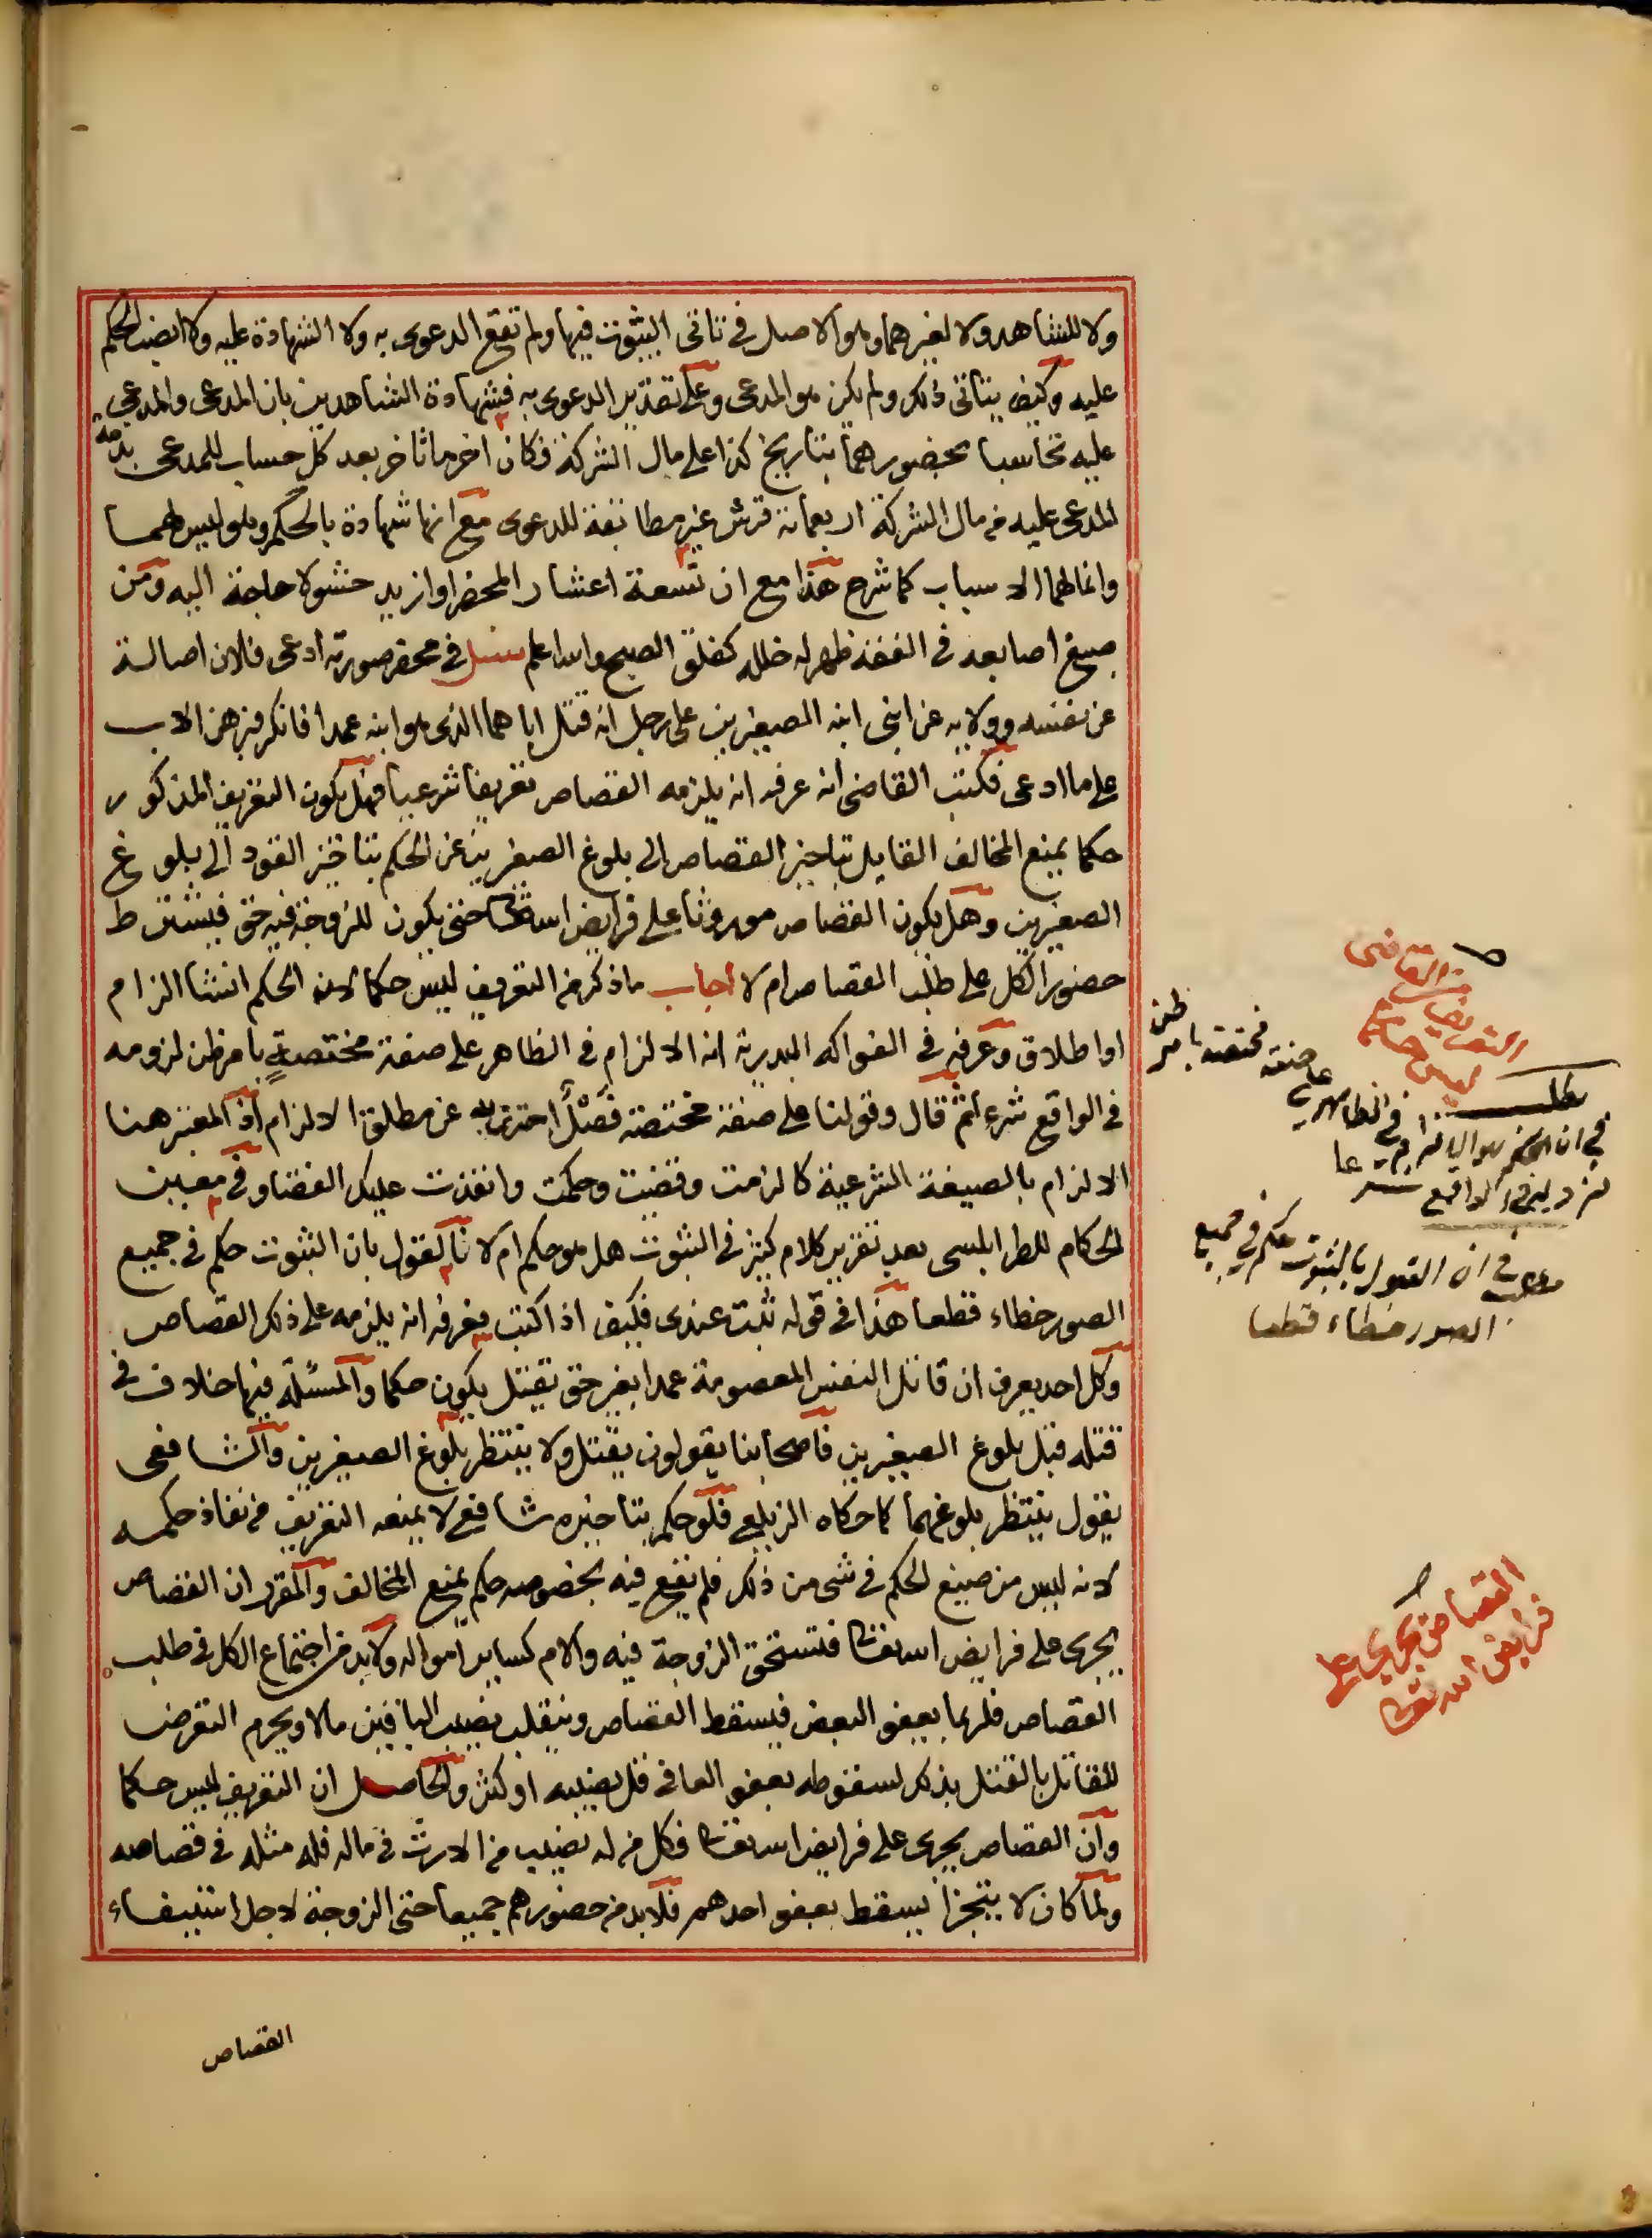 ولا للشاهد ولا لغيرهما وهو الاصل في تأتى الثبوت فيها ولم تقع الدعوى به ولا الشهادة عليه ولا انصب الحكم
عليه وكيف يتأتى ذلك ولم يكن هو المدعى وعلى تقدير الدعوى به فشهادة الشاهدين بان المدعى والمدعى
عليه تحاسبا بحضورهما بتاريخ كذا على مال الشركة فكان اخر ما تأخر بعد كل حساب للمدعى بذمة
المدعى عليه من مال الشركة اربعماية قرش غير مطابقة للدعوى مع انها شهادة بالحكم وهو ليس لهما
وانما لهما الاسباب كما شرح هذا مع ان تسعة اعشار المحضر او ازيد حشو لا حاجة اليه ومن
صبغ اصابعه في الفقه ظهر له خلله كفلق الصبح والله اعلم سئل في محضر صورته ادعى فلان اصالة
عن نفسه وولاية عن ابنى ابنه الصغيرين على رجل انه قتل اباهما الذى هو ابنه عمدا فانكر فبرهن الاب
على ما ادعى فكتب القاضى انه عرفه انه يلزمه القصاص تعريفا شرعيا فهل يكون التعريف المذكور
حكما يمنع المخالف القايل بتاخير القصاص الى بلوغ الصغيرين عن الحكم بتاخير القود الى بلوغ
الصغيرين وهل يكون القصاص موروثا على فرايض الله تعالى حتى يكون للزوجة فيه حق فيشترط
حضور الكل على طلب القصاص ام لا اجاب ما ذكر من التعريف ليس حكما لان الحكم انشا الزام
او اطلاق وعرفه في الفواكه البدرية انه الالزام في الظاهر على صفة مختصة بامر ظن لزومه
في الواقع شرعا ثم قال وقولنا على صفة مختصة فصل احترز به عن مطلق الالزام اذ المعتبر هنا
الالزام بالصيغة الشرعية كالزمت وقضيت وحكمت وانفذت عليك القضا وفي معين
الحكام للطرابلسى بعد تقرير كلام كثير في الثبوت هل هو حكم ام لا نا لقول بان الثبوت حكم في جميع
الصور خطاء قطعا هذا في قوله ثبت عندى فكيف اذا كتب فعرفه انه يلزمه على ذلك القصاص
وكل احد يعرف ان قاتل النفس المعصومة عمدا بغير حق يقتل يكون حكما والمسئلة فيها خلاف في
قتله قبل بلوغ الصغيرين فاصحابنا يقولون يقتل ولا ينتظر بلوغ الصغيرين والشافعى
يقول ينتظر بلوغهما كما حكاه الزيلعي فلو حكم بتاخيره شافعى لا يمنعه التعريف من نفاذ حكمه
لانه ليس من صيغ الحكم في شى من ذلك فلم يقع فيه بخصوصه حكم يمنع المخالف والمقرر ان القصاص
يجرى على فرايض الله تعالى فتستحق الزوجة فيه والام كساير امواله ولا بد من اجتماع الكل في طلب
القصاص فلربما يعفو البعض فيسقط القصاص وينقلب نصيب الباقين مالا ويحرم التعرض
للقاتل بالقتل بذلك لسقوطه بعفو العافى قل نصيبه او كثر والحاصل ان التعريف ليس حكما
وان القصاص يجرى على فرايض الله تعالى فكل من له نصيب من الارث في ماله فله مثله في قصاصه
ولما كان لا يتجزا يسقط بعفو احدهم فلا بد من حضورهم جميعا حتى الزوجة لاجل استيفاء
القصاص
التعريض من القاضى
ليس حكما
مطلب
في ان الحكم هو الالزام في الظاهر على صفة مختصة بامر ظن
لزومه في الواقع شرعا
مطلب في ان القول بالثبوت حكم في جميع
الصور خطاء قطعا
القصاص يجرى على
فرايض الله تعالى